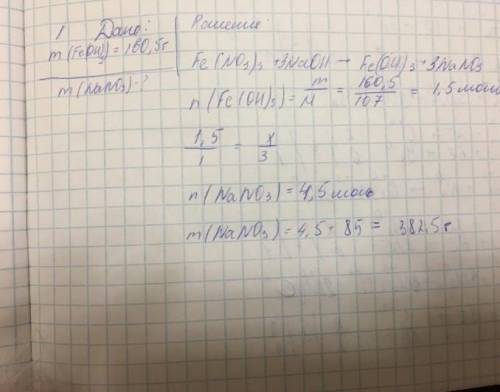 1 Дано:
m(Fe(OH)3)=160,5г
m(NaNO3)-?
Решение:
Fe(NO3)3 + 3NaOH → Fe(OH)3 + 3NaNO3
n(Fe(OH)3) = m/M = 160,5/107 = 1,5 моль
1,5/1 = x/3
n(NaNO3) = 4,5 моль
m(NaNO3) = 4,5 · 85 = 382,5г